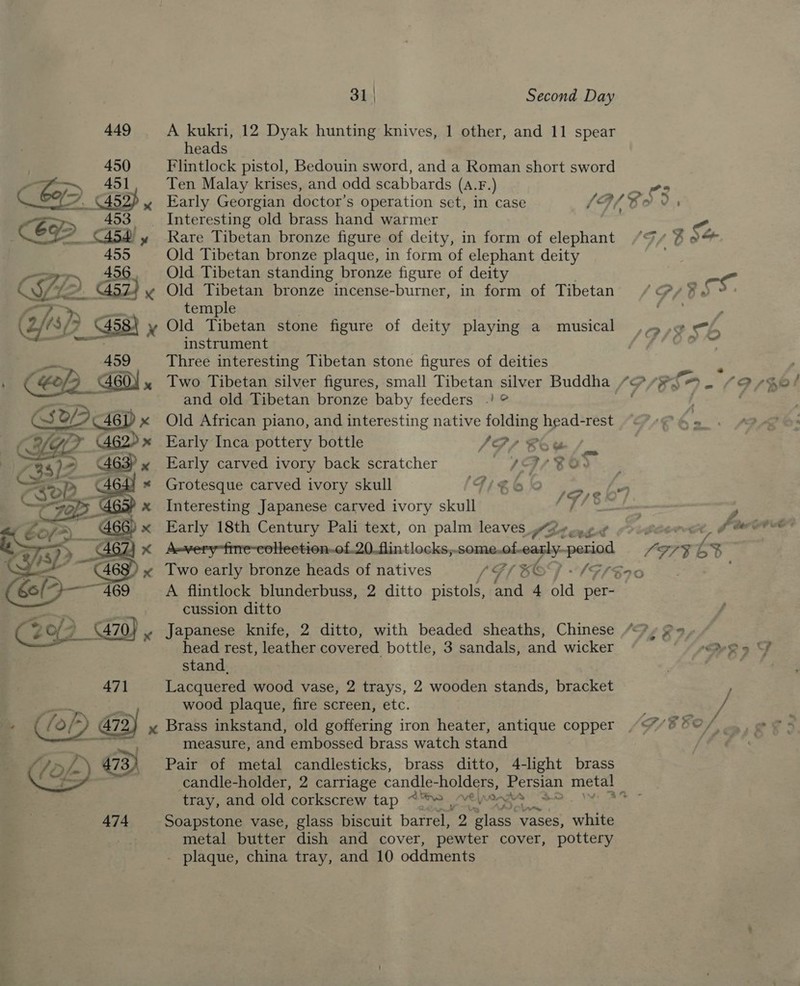 31 Second Day
449 A kukri, 12 Dyak hunting knives, 1 other, and 11 spear
heads
450 Flintlock pistol, Bedouin sword, and a Roman short sword
451 Ten Malay krises, and odd scabbards (A.F.)
60/- 452 x Early Georgian doctor's operation set, in case
453 Interesting old brass hand warmer
454 x Rare Tibetan bronze figure of deity, in form of elephant
455 Old Tibetan bronze plaque, in form of elephant deity
456 Old Tibetan standing bronze figure of deity
457 x Old Tibetan bronze incense-burner, in form of Tibetan
temple
458 x Old Tibetan stone figure of deity playing a musical
instrument
459 Three interesting Tibetan stone figures of deities
460 x Two Tibetan silver figures, small Tibetan silver Buddha
and old Tibetan bronze baby feeders
461 x Old African piano, and interesting native folding head-rest
462 x Early Inca pottery bottle
463 x Early carved ivory back scratcher
464 x Grotesque carved ivory skull
465 x Interesting Japanese carved ivory skull
466 x Early 18th Century Pali text, on palm leaves
467 x A very fine collection of 20 flintlocks, some of early period
468 x Two early bronze heads of natives
60/- 469 A flintlock blunderbuss, 2 ditto pistols, and 4 old per-
cussion ditto
470 x Japanese knife, 2 ditto, with beaded sheaths, Chinese
head rest, leather covered bottle, 3 sandals, and wicker
stand
471 Lacquered wood vase, 2 trays, 2 wooden stands, bracket
wood plaque, fire screen, etc.
10/- 472 x Brass inkstand, old goffering iron heater, antique copper
measure, and embossed brass watch stand
10/- 473 Pair of metal candlesticks, brass ditto, 4-light brass
candle-holder, 2 carriage candle-holders, Persian metal
tray, and old corkscrew tap
474 Soapstone vase, glass biscuit barrel, 2 glass vases, white
metal butter dish and cover, pewter cover, pottery
plaque, china tray, and 10 oddments